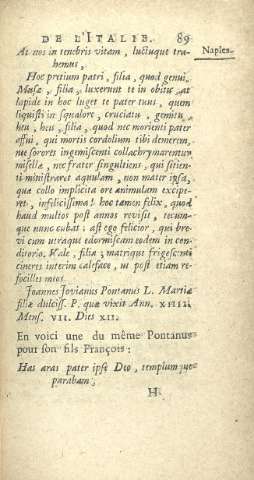 DE L'ITALIE. 89
Naples.
At nos in tenebris vitam, luctuque tra-
hemus,
Hoc pretium patri, filia, quod genui.
Musæ, filia, luxerunt te in obitu, at
lapide in hoc luget te pater tuus, quem
liquisti in squalore, cruciatu, gemitu,
heu, heu, filia, quod nec morienti pater
affui, qui mortis cordolium tibi demerem,
nec sorores ingemiscenti collachrymarentur
misellæ, nec frater singultiens, qui sitien-
ti ministraret aquulam, non mater ipsa,
quæ collo implicita ore animulam excipe-
ret, infelicissima! hoc tamen felix, quod
haud multos post annos revisit, tecum-
que nunc cubat: ast ego felicior, qui bre-
vi cum utraque edormiscam eodem in con-
ditorio. Vale, filia; matrique frigescenti
cineres interim caleface, ut post etiam re-
focilles meos.
Joannes Jovianus Pontanus L. Martiæ
filiæ dulciss. P. quæ vixit Ann. XIIII.
Mens. VII. Dies XII.
En voici une du même Pontanus
pour son fils François:
Has aras pater ipse Deo, templumque
parabam,
H